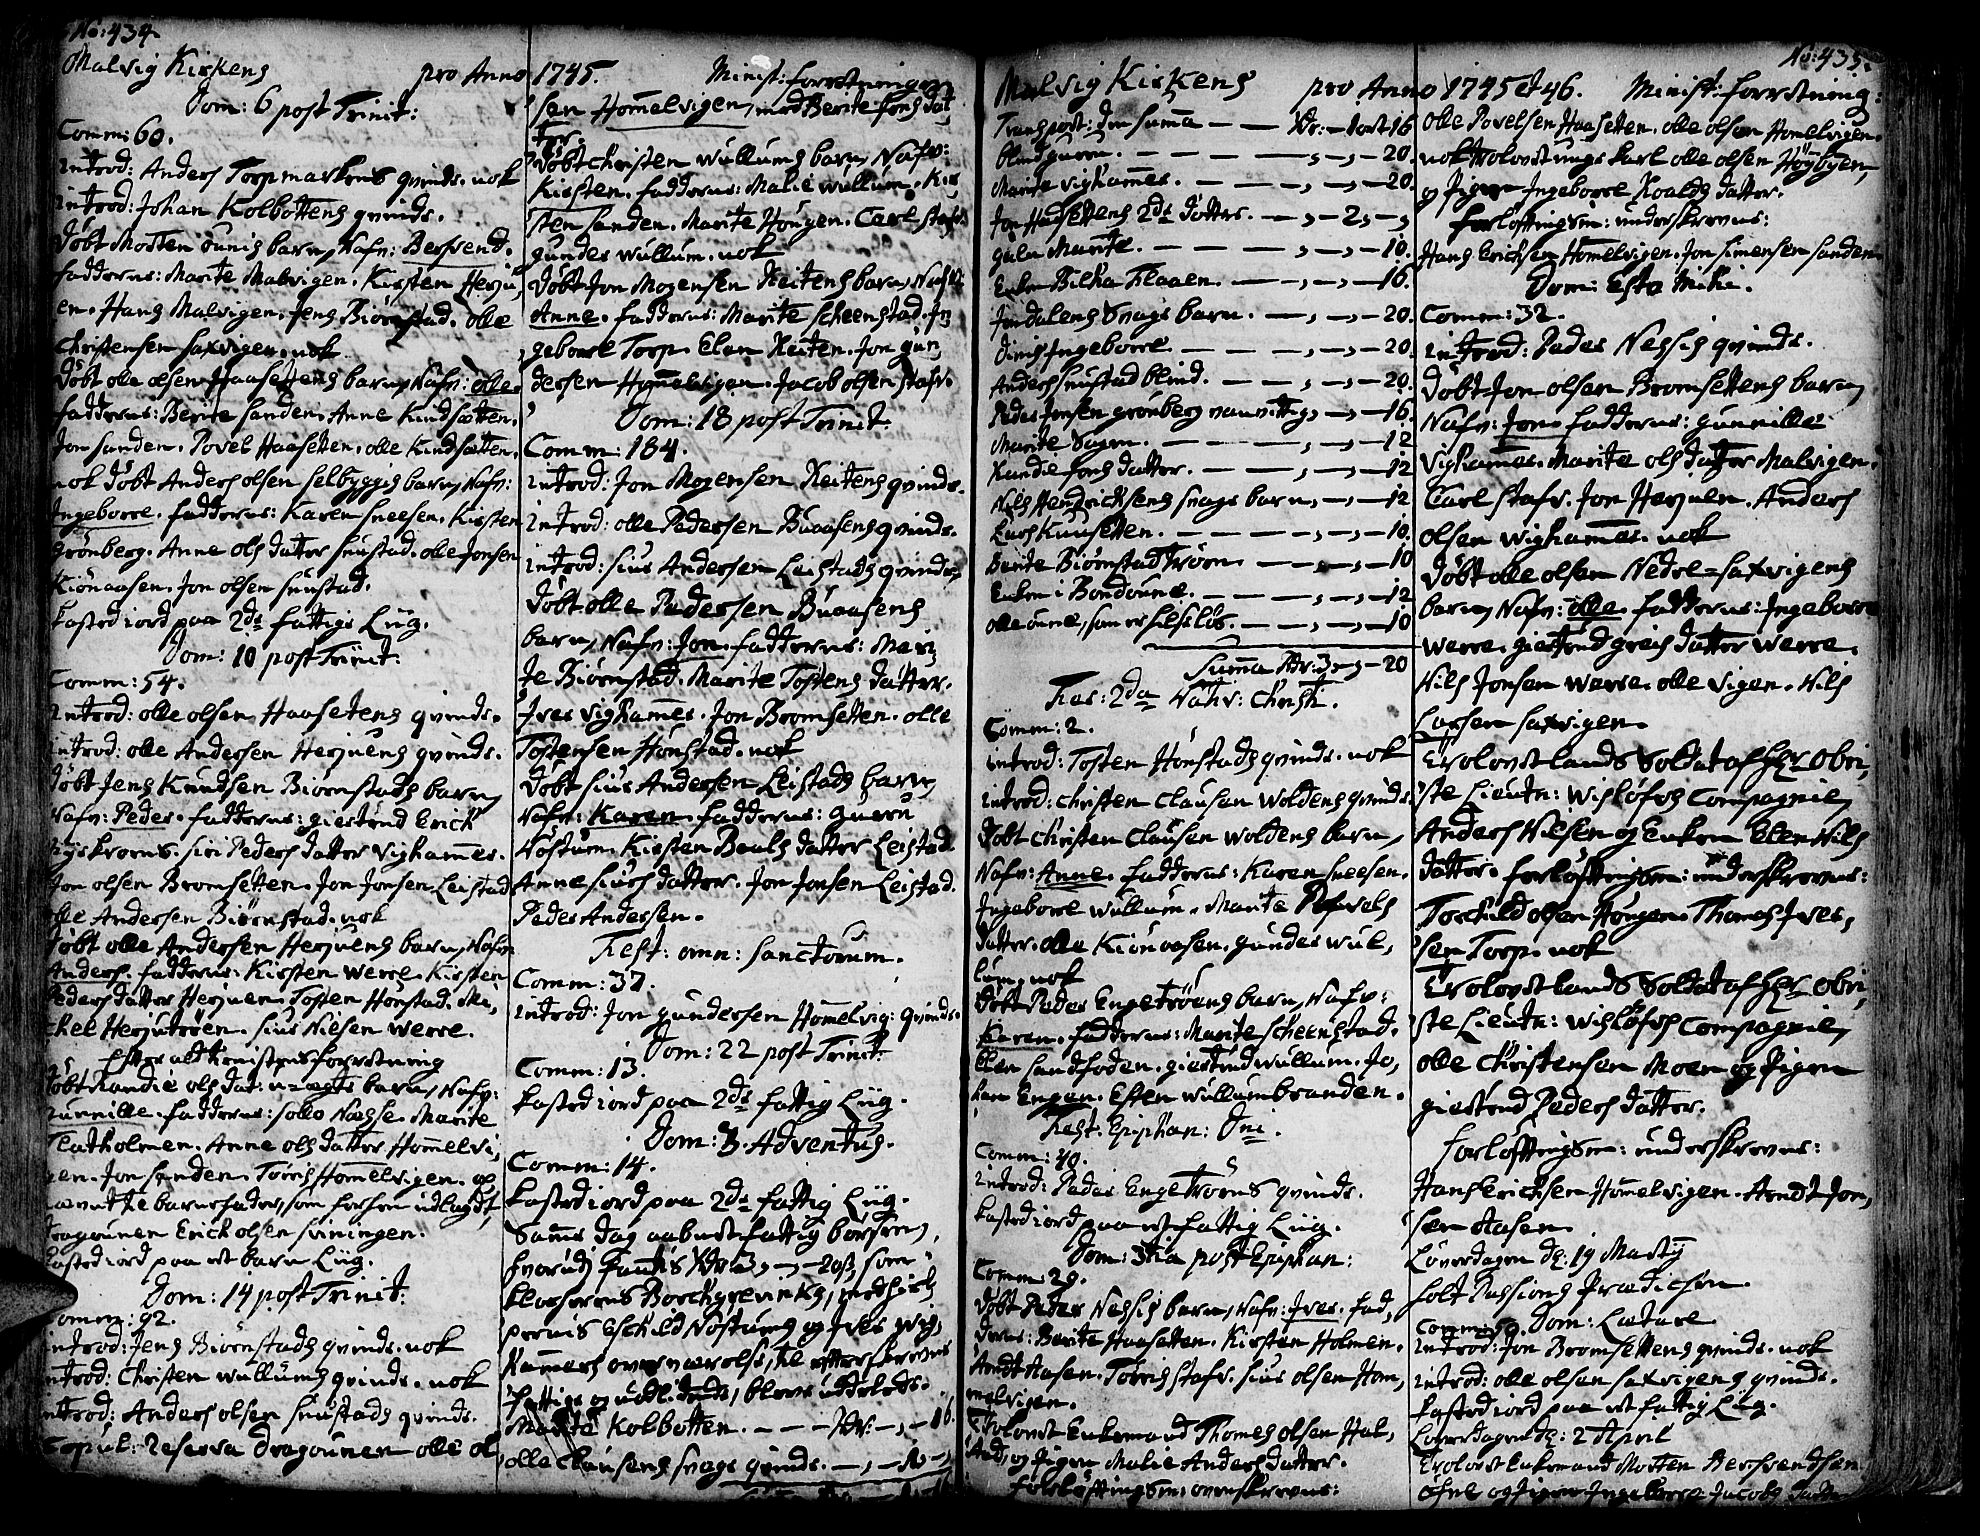 No: 434
Malvig Kirkens pro Anno
Dom: 6 post Trinit:
Comm: 60.
Introd: Anders Torpmarkens qvinde. nok
Introd: Johan Kolbottens qvinde.
Döbt Mosten ounis barn, Nafn: Bersvend.
fadderne: Marite Malvigen. Kirsten Herju,
en. Hans Malvigen. Jens Biörnstad. olle
Christensen Saxvigen. nok
Döbt olle olsen Haasettens barn, Nafn: olle.
fadderne: Berite Sanden. Anne Kindsetten.
Jon Sanden. Povel Haasetten. olle Kindsetten.
nok döbt Anders olsen selbyggis barn, Nafn:
Ingeborre. fadderne: Karen Sneesen. Kirsten
Grönberg. Anne olsdatter Snustad. olle Jonsen
Kiönaasen. Jon olsen Snustad.
kasted iord paa 2de fattigs Liig.
Dom: 10 post Trinit:
Comm: 54.
Introd: olle olsen Haasetens qvinde.
Introd: olle Andersen Herjuens qvinde.
Döbt Jens Knudsen Biörnstads barn,
Nafn: Peder. fadderne: giertrud Erich
Siri Peders datter Vighammer.
Jon olsen Bromsetten. Jon Jonsen Leistad
olle Andersen Biörnstad. nok
Döbt olle Andersen Herjuens barn, Nafn
Anders. fadderne: Kirsten Werre. Kirsten
Peders datter Herjuen. Tosten Hönstad. Mi,
chel Herjutröen. Siur Nielsen Werre.
Efter alt tienistens forretning
Döbt Randie olsdat: u-ægte barn, Nafn:
Gunnille. fadderne: Marite
Flatholmen. Anne olsdatter Hommelvi,
gen. Jon Sanden. Törris Hommelvigen. og
nævnt te barnefader, som forhen udlagdt,
dragounen Erich olsen Sviningen.
kasted iord paa et barn Liig.
Dom: 14 post Trinit:
Comm: 92.
Introd: Jens Biörnstads qvinde. nok
Introd: Christen Wullums qvinde. nok
Introd: Anders olsen Snustads qvinde.
Copul: Reserva dragounen olle ol,
1745. Minist: forretninger
sen Hommelvigen, med Berite Jons dat
ter.
Döbt Christen Wullums barn, Nafn:
Kirsten. fadderne: Malie Wullum. Kir,
sten Sanden. Marite Hougen. Carl Stafr.
gunder Wullum. nok
Döbt Jon Mogensen Reitens barn, Nafn:
Anne. fadderne: Marite Scheenstad. In
geborre Torp. Elen Reiten. Jon gun
dersen Hommelvigen. Jacob olsen Stafr.
Dom: 18 post Trinit:
Comm: 184.
Introd: Jon Mogensen Reitens qvinde.
Introd: olle Pedersen Buaasens qvinde.
Introd: Siur Andersen Leistads qvinde.
Döbt olle Pedersen Buaasens
barn, Nafn: Jon. fadderne: Mari
te Biörnstad. Marite Tostens datter.
Iver Vighammer. Jon Bromsetten. olle
Tostensen Hönstad. nok
Döbt Siur Andersen Leistads barn,
Nafn: Karen. fadderne: Guru
Nostum. Kirsten Pouls datter Leistad
Anne Siurs datter. Jon Jonsen Leistad.
Peder Andersen.
Fest: omn: Sanctorum.
Comm: 37.
Introd: Jon Gundersen Hommelvig: qvinde.
Dom: 22 post Trinit:
Comm: 13.
kasted iord paa 2de fattig Liig.
Dom: 3 Adventus.
Comm: 14.
kasted iord paa 2de fattig Liig.
Samme dag aabnet fattig börsen,
hvorudj fandtis Rdr 3,-,-20ß, som
klockerens Borchgrevinks, medhiel
peris Eschild Nostums og Iver Wig,
hammers overværelse, te efterskrevne
fattige og nödlidende, bleve uddelede.
Marite Kolbotten. — — — Rdr: — , — 16.
olle Clausens svage qvinde. — , —
No: 435.
Malvig Kirkens pro Anno
Transport: den Summa — — Rdr: — 1 ort 16
blind guren. — — — — , — , — 20.
Marite Vighammer. — — — , — , — 20.
Jon Haasettens 2de döttre. — — , — 2, — ,
galn Marite. — — — — , — , — 10.
Enken Bilha Flaaen. — — — , — , — 16.
Jondalens svage barn. — — , — , — 20.
Ingeborre. — — — , — , — 20.
Anders Snustad blind. — — — , — , — 20.
Peder Jonsen grönberg vanvittig, — , — 16.
Marite Sagen. — — — , — , — 12
Randie Jons datter. — — — , — , — 12
Nils Hendrichsens svage barn, — , — 12
Lars Knusetten. — — — , — , — 10.
Berite Biörnstadtröen — — , — , — 10
Enken i Bondoune. — — — , — , — 12
olle oune, som er — — , — , — 10
Summa Rdr: 3, — , — 20
Fer: 2da Nativ: Christi.
Comm: 2.
Introd: Tosten Hönstads qvinde. nok
Introd: Christen Clausen Woldens qvinde.
Döbt Christen Clausen Woldens barn,
Nafn: Anne. fadderne: Karen Sneesen.
Ingeborre Wullum. Marite Povels
datter. olle Kiönaasen. gunder Wul,
lum. nok
Döbt Peder Engetröens barn, Nafn:
Karen. fadderne: Marite Scheenstad.
Elen Sandfoden. giertrud Wullum. Jo,
han Engen. Esten Wullumbranden.
Fest: Epiphan: Dni.
Comm: 40.
Introd: Peder Engetröens qvinde.
kasted iord paa et fattig Liig.
Dom: 3tia post Epiphan:
Comm: 29.
Döbt Peder Nessis barn, Nafn: Iver. fad,
derne: Berite Haasetten. Kirsten Holmen.
Arndt Hasen. Törris Stafr. Siur olsen Hom,
melvigen.
Trolovet Enkemand Thomes olsen Hal,
stad, og Pigen Malie Anders datter.
Forlöftingsm: ovenskrevne:
1745 et 46. Minist: forretning:
olle Povelsen Haasetten. olle olsen Hommelvigen.
nok Trolovet ungekarl olle olsen Höybyen,
og Pigen Ingeborre Roalds datter.
Forlöftingsm: underskrevne:
Hans Erichsen Hommelvigen. Jon Simensen Sanden
Dom: Esto Mihi.
Comm: 32.
Introd: Peder Nessis qvinde.
Döbt Jon olsen Bromsettens barn,
Nafn: Jon. fadderne: Gunnille
Vighammer. Marite olsdatter Malvigen.
Carl Stafr. Jon Herjuen. Anders
olsen Wighammer. nok
Döbt olle olsen Nedre-Saxvigens
barn, Nafn: olle. fadderne: Ingeborre
Werre. giertrud greis datter Werre.
Nils Jonsen Werre. olle Vigen. Nils
Larsen Saxvigen.
Trolovet Lands Soldat af Hr Obri,
ste Lieutn: Wislöfs Compagnie,
Anders Nielsen og Enken Elen Nils
datter. Forlöftingsm: underskrevne:
Torchild olsen Hougen. Thomes Iver,
sen Torp. nok
Trolovet Lands Soldat af Hr Obri,
ste Lieutn: Wislöfs Compagnie,
olle Christensen Moen og Pigen
giertrud Peders datter.
Forlöftingsm: underskrevne:
Hans Erichsen Hommelvigen. Arndt Jon,
sen Hasen.
Löverdagen d: 19 Martij
holt Passions Prædichen
Comm: 59. Dom: Lætare
Introd: Jon Bromsettens qvinde. nok
Introd: olle olsen Saxvigens qvinde.
kasted iord paa et fattig Liig.
Löverdagen d: 2 April
Trolovet Enkemand Mosten Bersvendsen
og Pigen Ingeborre Jacobs datter